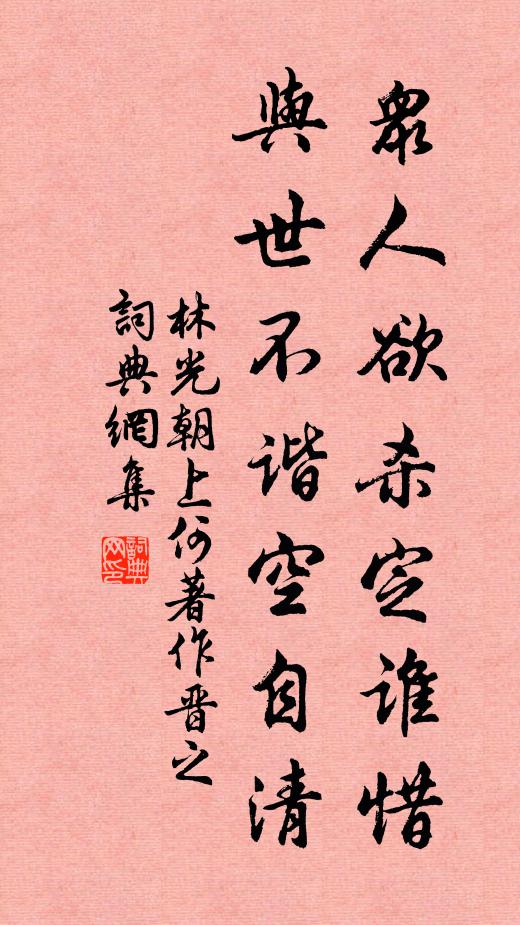 眾人欲杀定谁惜
與世不谐空自清
林光朝上何著作晋之
詞典網集
詞典网印